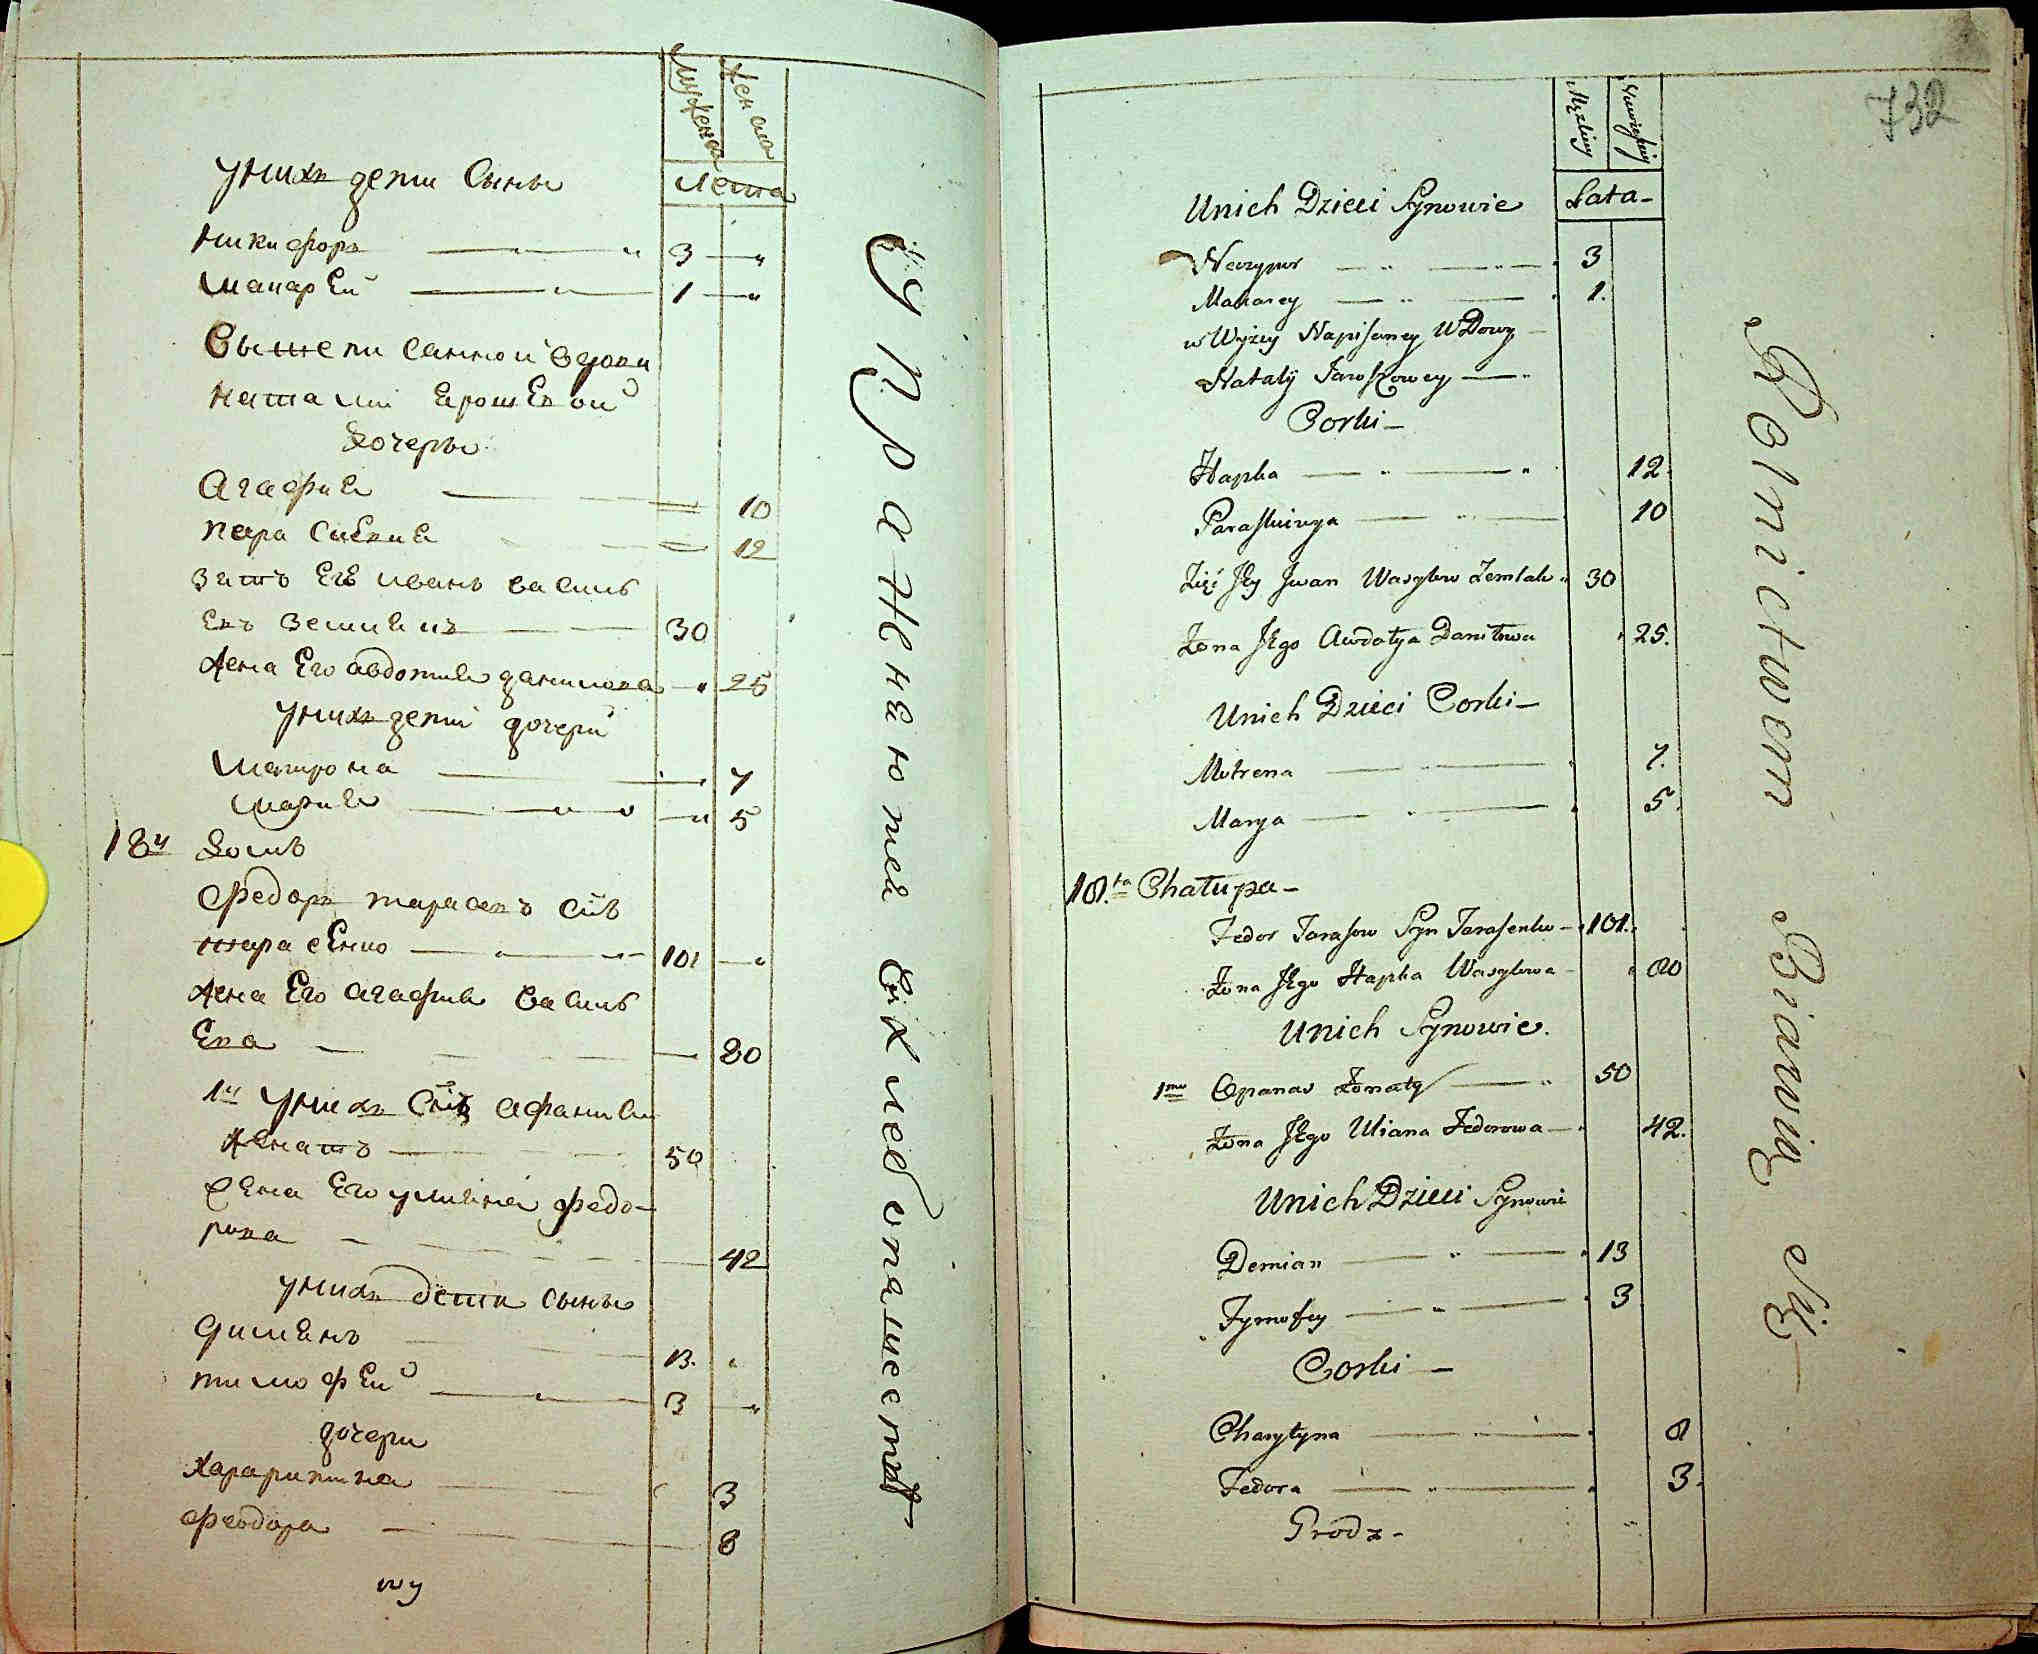 мужеска женска
лета
у них дети сыны
никифоръ 3
макарей 1
вышеписанной вдовы
наталии ярошевой
дочеры
Агафия 10
параскевия 12
зять Ея иванъ василь
евъ земливъ 30
жена Его авдотия данилова 25
у них дети дочери
матрона 7
мария 5
18й домъ
Федоръ тарасовъ сынъ
тарасенко 101
жена Его агафия василь
Ева 80
1й у них сынъ афанасий
женатъ 50
жена Его улияна федо-
рова 42
у них дети сыны
димианъ 13.
тимофей 3
дочери
харитина 3
феодора 8
упражняются
хлебопашеством
732
Męzkiey Niewieskiey
Lata-
Unich Dzieci Synowie
Neczypor 3
Makarey 1.
w Wyzey Napisaney Wdowy
Nataly Jaroszowey
Corki-
Hapka 12.
Paraskiewya 10
Zięć Jey Jwan Wasylow Zemlak 30
Zona Jego Awdotya Daniłowa 25.
Unich Dzieci Corki-
Motrena 7.
Marya 5.
18.ta Chałupa-
Fedor Tarasow Syn Tarasenko 101.
Zona Jego Hapka Wasylowa 80
Unich Synowie.
1mo Opanas Zonaty 50
Zona Jego Uliana Fedorowa 42.
Unich Dzieci Synowie
Demian 13
Tymofey 3
Corki
Charytyna 8
Fedora 3.
Prodz-
Rolnictwem Biawią Się